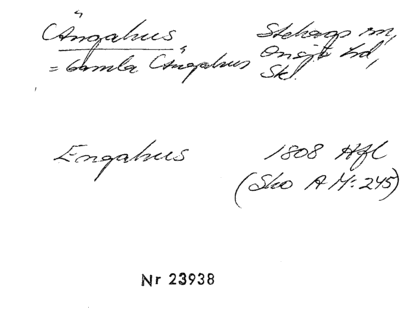 Ängahus Stehags sn,
= Gamla Ängahus Onsjö hd,
Sk.
Engahus 1808 Hfl
(Sko A M: 245)
Nr 23938